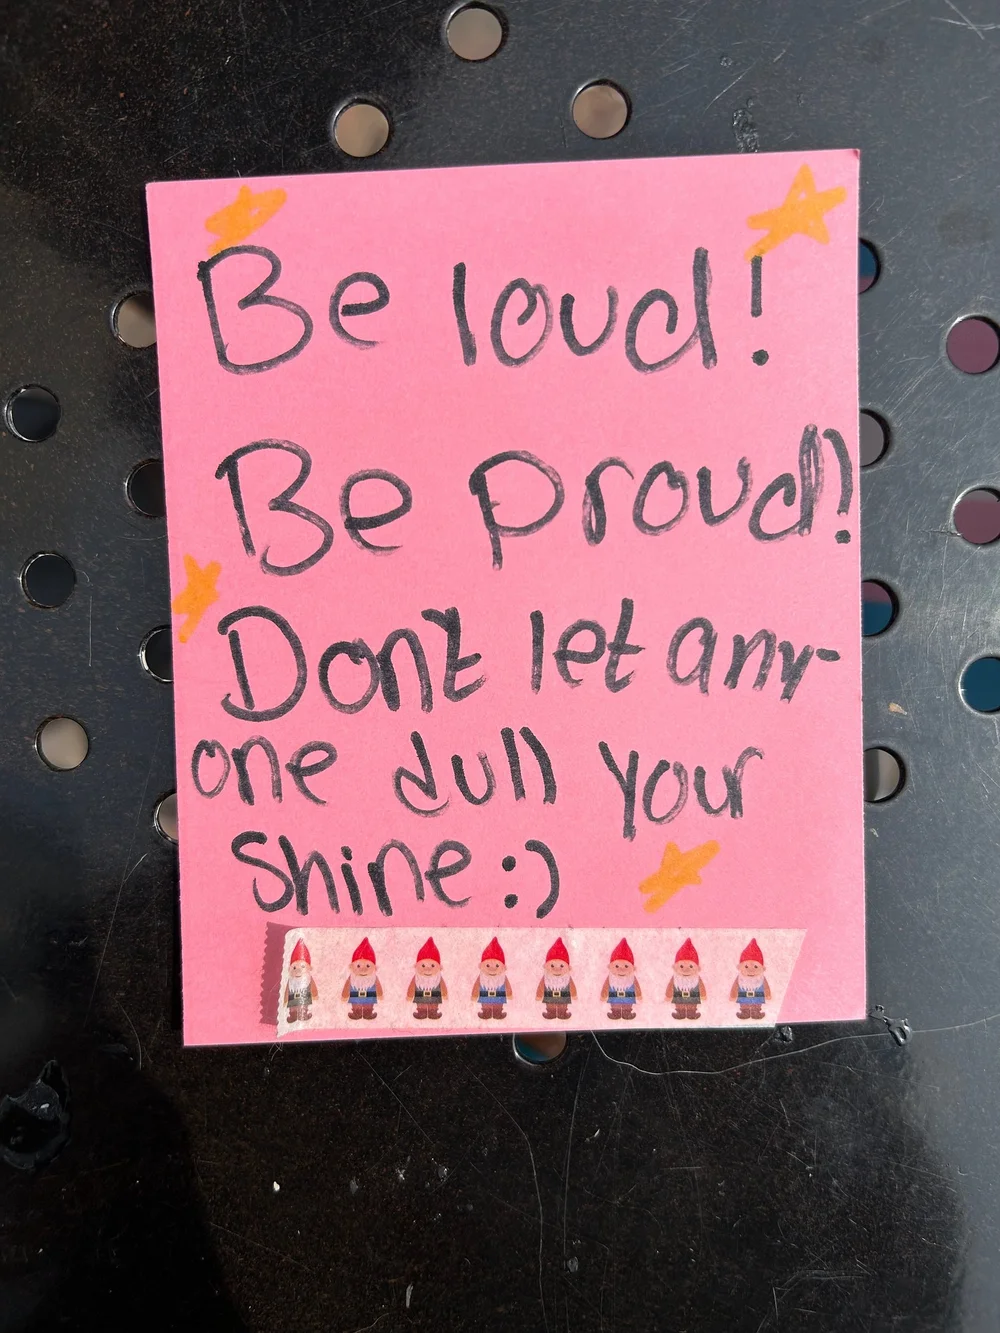 Be loud!
Be proud!
Don't let any-
one dull your
shine :)